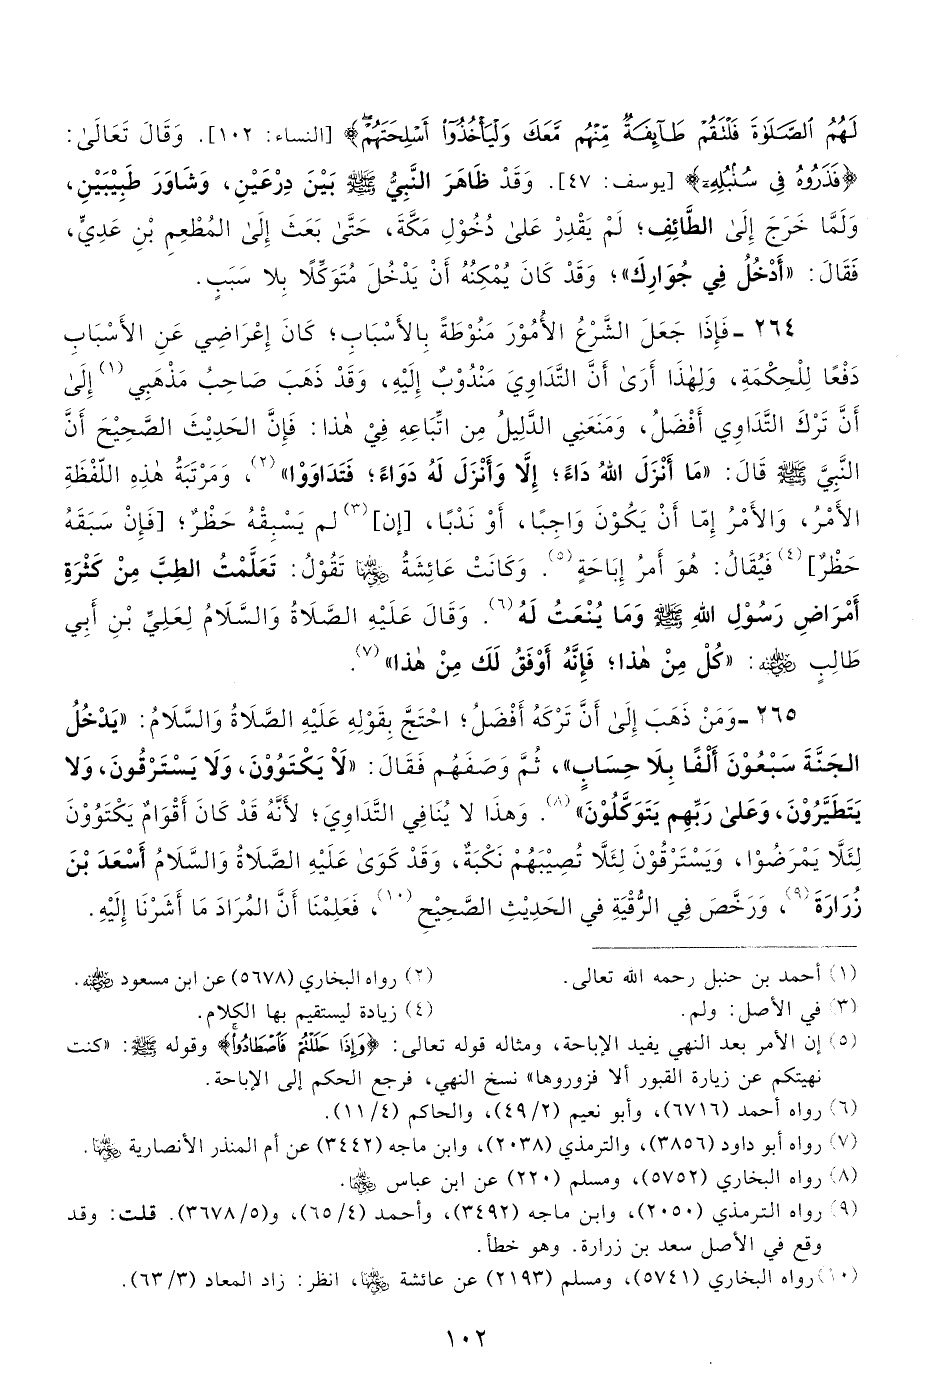 لَهُمُ ٱلصَّلَوٰةَ فَلْتَقُمْ طَآئِفَةٌ مِّنْهُم مَّعَكَ وَلْيَأْخُذُوٓا۟ أَسْلِحَتَهُمْ﴾ [النساء: ١٠٢]. وَقَالَ تَعَالَىٰ:
﴿فَذَرُوهُ فِى سُنۢبُلِهِۦٓ﴾ [يوسف: ٤٧]. وَقَدْ ظَاهَرَ النَّبِيُّ ﷺ بَيْنَ دِرْعَيْنِ، وَشَاوَرَ طَبِيْبَيْنِ،
وَلَمَّا خَرَجَ إِلَىٰ الطَّائِفِ؛ لَمْ يَقْدِرْ عَلىٰ دُخُوْلِ مَكَّةَ، حَتَّىٰ بَعَثَ إِلَىٰ المُطْعِمِ بْنِ عَدِيٍّ،
فَقَالَ: «أَدْخُلُ فِي جُوَارِكَ»؛ وَقَدْ كَانَ يُمْكِنُهُ أَنْ يَدْخُلَ مُتَوَكِّلًا بِلا سَبَبٍ.
٢٦٤ ـ فَإِذَا جَعَلَ الشَّرْعُ الأُمُوْرَ مَنُوْطَةً بِالأَسْبَابِ؛ كَانَ إِعْرَاضِي عَنِ الأَسْبَابِ
دَفْعًا لِلْحِكْمَةِ، وَلِهٰذَا أَرَىٰ أَنَّ التَّدَاوِيَ مَنْدُوْبٌ إِلَيْهِ، وَقَدْ ذَهَبَ صَاحِبُ مَذْهَبِي (١) إِلَىٰ
أَنَّ تَرْكَ التَّدَاوِي أَفْضَلُ، وَمَنَعَنِي الدَّلِيلُ مِنِ اتِّبَاعِهِ فِيْ هٰذَا: فَإِنَّ الحَدِيْثَ الصَّحِيْحَ أَنَّ
النَّبِيَّ ﷺ قَالَ: «مَا أَنْزَلَ اللهُ دَاءً؛ إِلَّا وَأَنْزَلَ لَهُ دَوَاءً؛ فَتَدَاوَوْا» (٢)، وَمَرْتَبَةُ هٰذِهِ اللَّفْظَةِ
الأَمْرُ، وَالأَمْرُ إِمَّا أَنْ يَكُوْنَ وَاجِبًا، أَوْ نَدْبًا، [إن] (٣) لم يَسْبِقْهُ حَظْرٌ؛ [فَإِنْ سَبَقَهُ
حَظْرٌ] (٤) فَيُقَالُ: هُوَ أَمرُ إِبَاحَةٍ (٥). وَكَانَتْ عَائِشَةُ رضي الله عنها تَقُوْلُ: تَعَلَّمْتُ الطِبَّ مِنْ كَثْرَةِ
أَمْرَاضِ رَسُوْلِ اللهِ ﷺ وَمَا يُنْعَتُ لَهُ (٦). وَقَالَ عَلَيْهِ الصَّلاةُ وَالسَّلامُ لِعَلِيِّ بْنِ أَبِي
طَالِبٍ رضي الله عنه: «كُلْ مِنْ هٰذا؛ فَإِنَّهُ أَوْفَقُ لَكَ مِنْ هٰذا» (٧).
٢٦٥ ـ وَمَنْ ذَهَبَ إِلَىٰ أَنَّ تَرْكَهُ أَفْضَلُ؛ احْتَجَّ بِقَوْلِهِ عَلَيْهِ الصَّلاةُ وَالسَّلامُ: «يَدْخُلُ
الجَنَّةَ سَبْعُوْنَ أَلْفًا بِلَا حِسَابٍ»، ثُمَّ وَصَفَهُم فَقَالَ: «لَاْ يَكْتَوُوْنَ، وَلَا يَسْتَرْقُونَ، وَلا
يَتَطَيَّرُوْنَ، وَعَلىٰ رَبِّهِم يَتَوَكَّلُونَ» (٨). وَهذَا لا يُنَافِي التَّدَاوِيَ؛ لأَنَّهُ قَدْ كَانَ أَقْوَامٌ يَكْتَوُوْنَ
لِئَلَّا يَمْرَضُوْا، وَيَسْتَرْقُوْنَ لِئَلَّا تُصِيْبَهُمْ نَكْبَةٌ، وَقَدْ كَوَىٰ عَلَيْهِ الصَّلاةُ وَالسَّلامُ أَسْعَدَ بْنَ
زُرَارَةَ (٩)، وَرَخَّصَ فِي الرُّقْيَةِ في الحَدِيْثِ الصَّحِيْحِ (١٠)، فَعَلِمْنَا أَنَّ المُرَادَ مَا أَشَرْنَا إِلَيْهِ.
(١) أحمد بن حنبل رحمه الله تعالى.
(٢) رواه البخاري (٥٦٧٨) عن ابن مسعود رضي الله عنه.
(٣) في الأصل: ولم.
(٤) زيادة ليستقيم بها الكلام.
(٥) إن الأمر بعد النهي يفيد الإباحة، ومثاله قوله تعالى: ﴿وَإِذَا حَلَلْتُمْ فَٱصْطَادُوا۟﴾ وقوله ﷺ: «كنت
نهيتكم عن زيارة القبور ألا فزوروها» نسخ النهي، فرجع الحكم إلى الإباحة.
(٦) رواه أحمد (٦٧١٦)، وأبو نعيم (٤٩/٢)، والحاكم (١١/٤).
(٧) رواه أبو داود (٣٨٥٦)، والترمذي (٢٠٣٨)، وابن ماجه (٣٤٤٢) عن أم المنذر الأنصارية رضي الله عنها.
(٨) رواه البخاري (٥٧٥٢)، ومسلم (٢٢٠) عن ابن عباس رضي الله عنهما.
(٩) رواه الترمذي (٢٠٥٠)، وابن ماجه (٣٤٩٢)، وأحمد (٦٥/٤)، و(٣٦٧٨/٥). قلت: وقد
وقع في الأصل سعد بن زرارة. وهو خطأ.
(١٠) رواه البخاري (٥٧٤١)، ومسلم (٢١٩٣) عن عائشة رضي الله عنها، انظر: زاد المعاد (٦٣/٣).
١٠٢